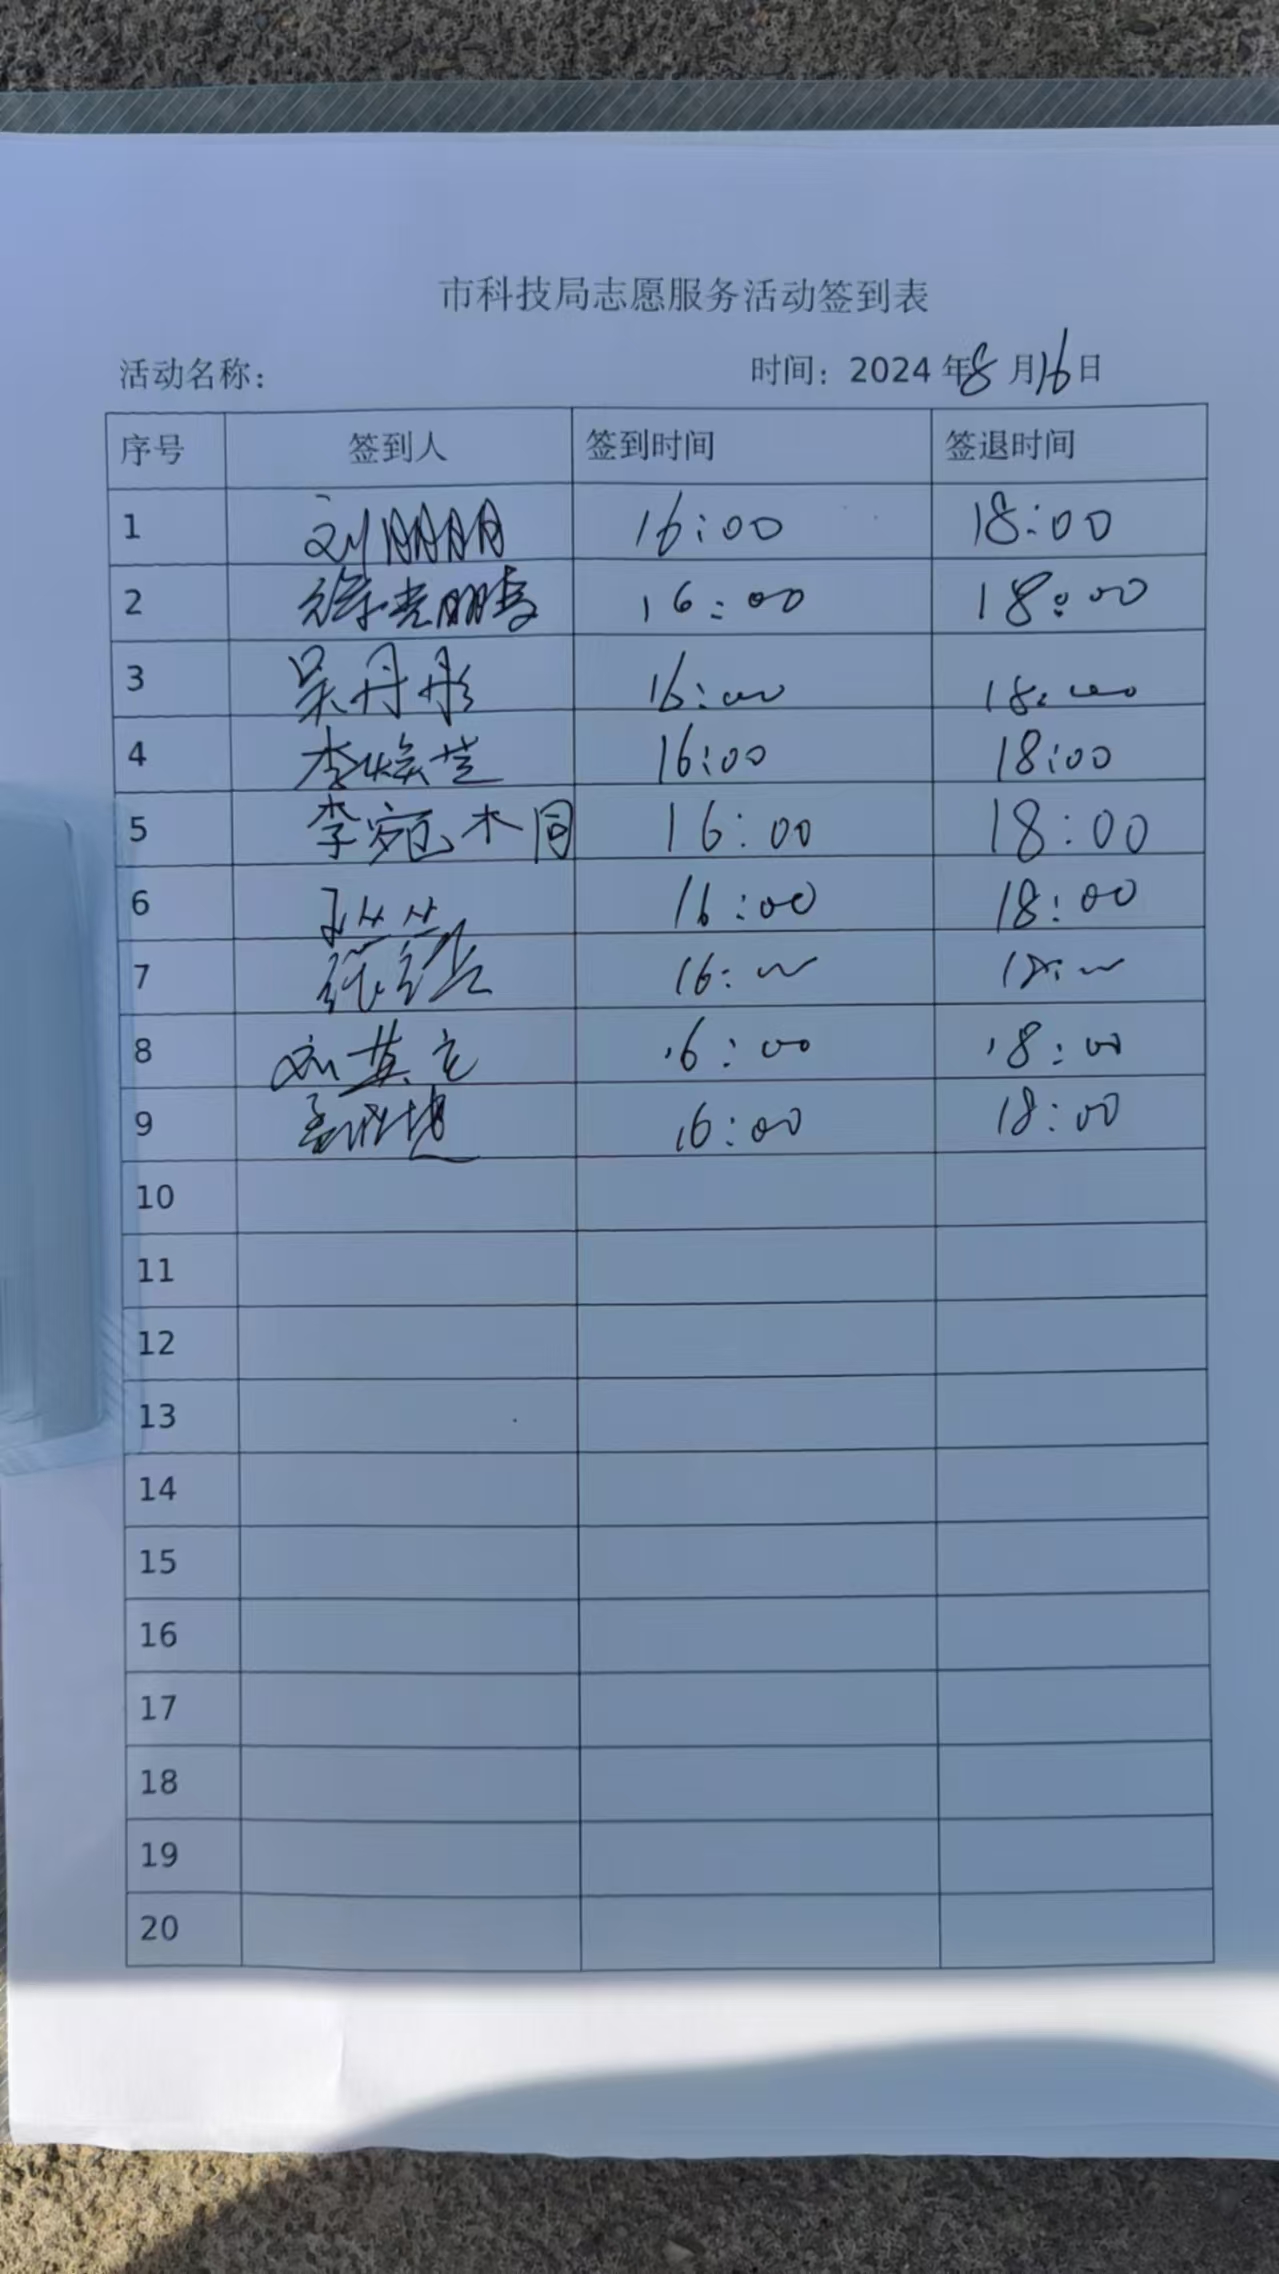 市科技局志愿服务活动签到表
活动名称: 时间: 2024 年8月16日
序号 签到人 签到时间 签退时间
1 刘朋朋 16:00 18:00
2 徐 16:00 18:00
3 吴丹彤 16:00 18:00
4 李焕芝 16:00 18:00
5 李宛桐 16:00 18:00
6 16:00 18:00
7 16:00 18:00
8 刘英 16:00 18:00
9 孟 16:00 18:00
10
11
12
13
14
15
16
17
18
19
20